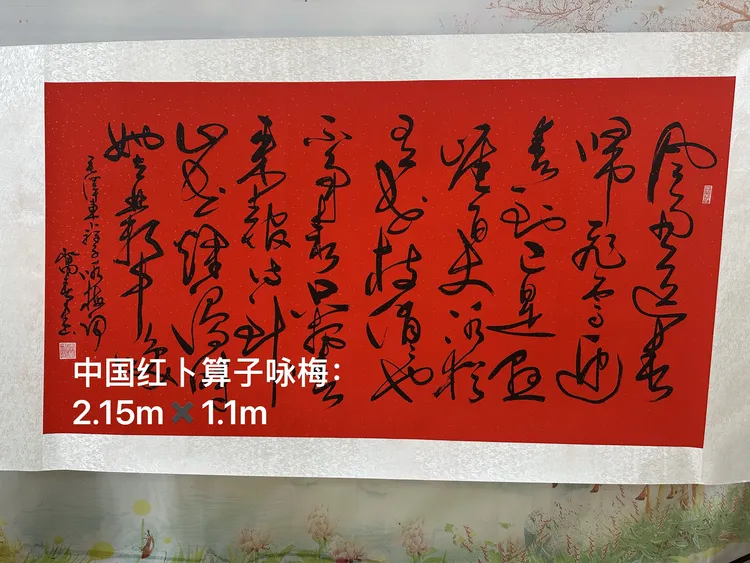 风雨送春
归飞雪迎
春到已是悬
崖百丈冰犹
有花枝俏々也
不争春只把春
来报待到
山花烂漫时
她在丛中笑
毛泽东卜算子咏梅词
中国红卜算子咏梅：
2.15m✖️1.1m